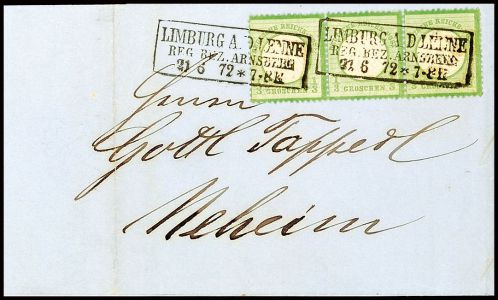 LIMBURG A. D. LENNE
REG. BEZ. ARNSBERG
21 6 72 * 7-8 N
LIMBURG A. D. LENNE
REG. BEZ. ARNSBERG
21 6 72 * 7-8 N
REICHS
1/3 GROSCHEN 1/3
1/3 GROSCHEN 1/3
1/3 GROSCHEN 1/3
Herrn
Gottl Tapperl
Neheim